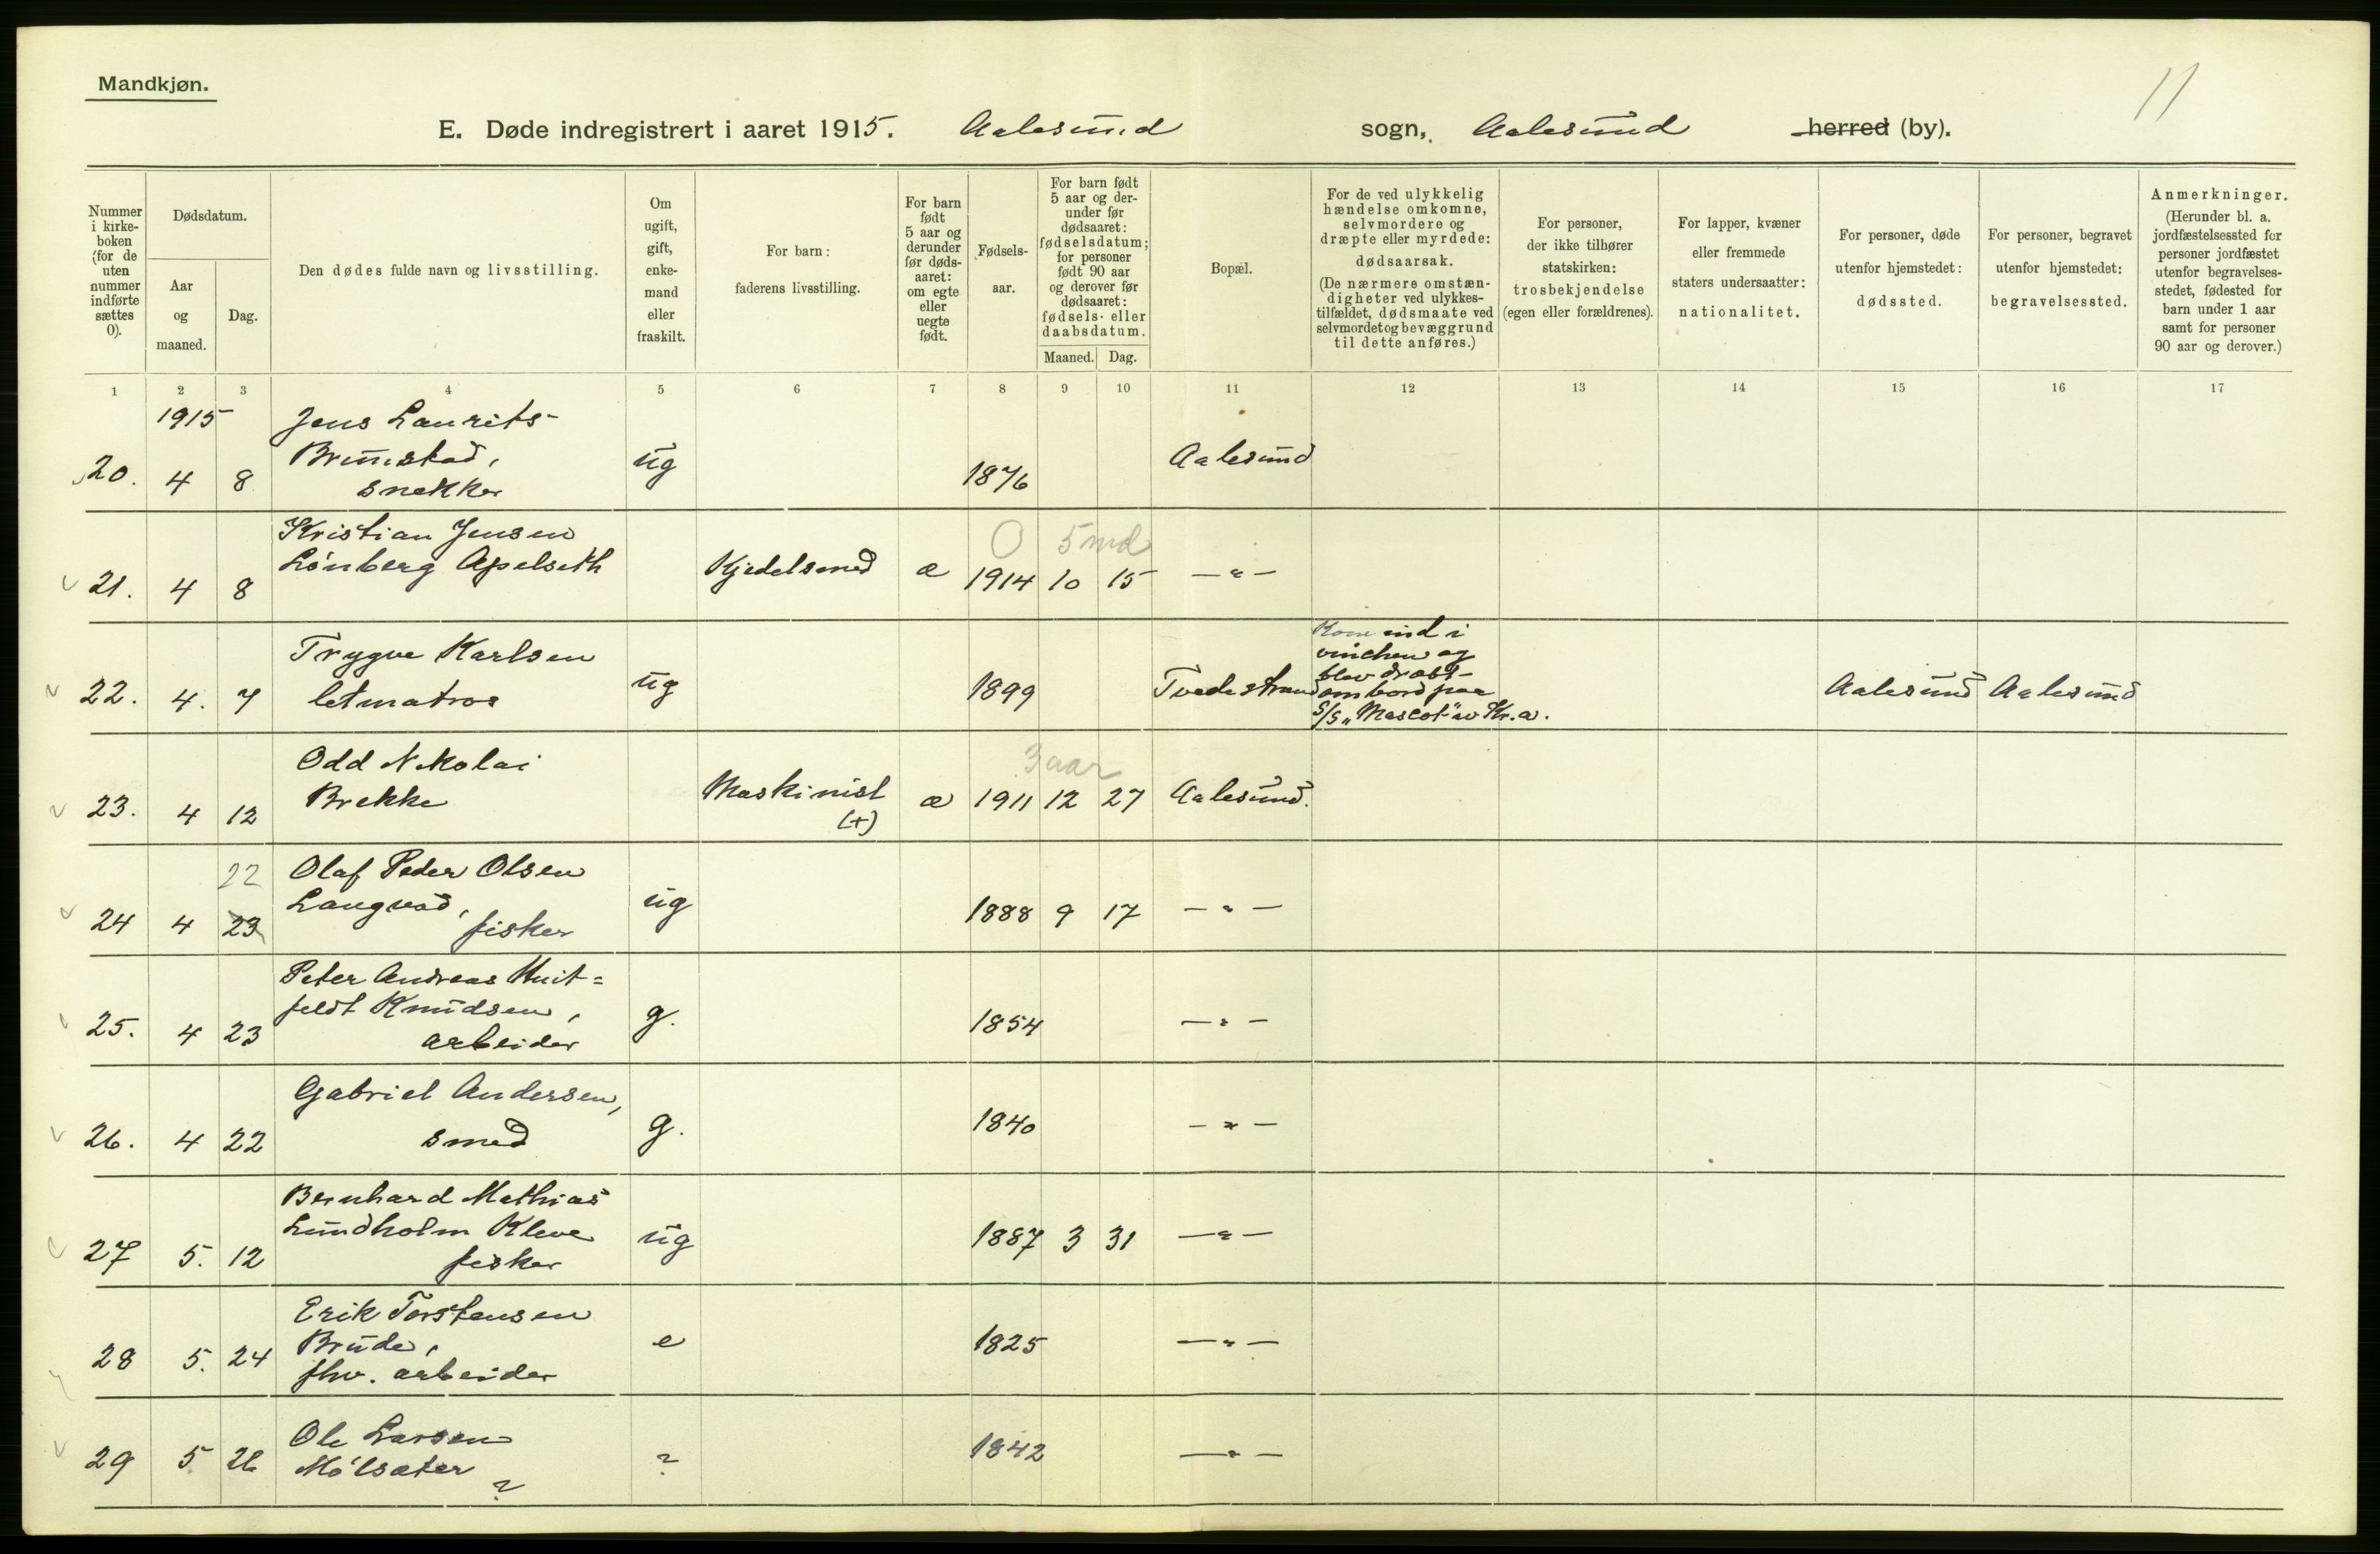 Mandkjøn.
11
E. Døde indregistrert i aaret 1915. Aalesund sogn, Aalesund herred (by).
Nummer i kirkeboken (for de uten nummer indførte sættes 0).
Dødsdatum.
Aar og maaned.
Dag.
Den dødes fulde navn og livsstilling.
Om ugift, gift, enkemand eller fraskilt.
For barn: faderens livsstilling.
For barn født 5 aar og derunder før dødsaaret: om egte eller uegte født.
Fødselsaar.
For barn født 5 aar og derunder før dødsaaret: fødselsdatum; for personer født 90 aar og derover før dødsaaret: fødsels- eller daabsdatum.
Maaned. Dag.
Bopæl.
For de ved ulykkelig hændelse omkomne, selvmordere og dræpte eller myrdede: dødsaarsak.
(De nærmere omstændigheter ved ulykkestilfældet, dødsmaate ved selvmordet og bevæggrund til dette anføres.)
For personer, der ikke tilhører statskirken: trosbekjendelse (egen eller forældrenes).
For lapper, kvæner eller fremmede staters undersaatter: nationalitet.
For personer, døde utenfor hjemstedet: dødssted.
For personer, begravet utenfor hjemstedet: begravelsessted.
Anmerkninger.
(Herunder bl. a. jordfæstelsessted for personer jordfæstet utenfor begravelsesstedet, fødested for barn under 1 aar samt for personer 90 aar og derover.)
1 2 3 4 5 6 7 8 9 10 11 12 13 14 15 16 17
1915 Jens Laurits
Brunstad,
20. 4 8 snekker ug 1876 Aalesund
Kristian Jensen 0 5 md
Lønberg Apelseth
21. 4 8 Kjedelsmed æ 1914 10 15 — " —
Trygve Karlsen
22. 4. 7 letmatros ug 1899 Tvedestrand
Kom ind i
vinchen og
blev dræbt
ombord paa
S/S "Mascot" av Kr.a.
Aalesund Aalesund
Odd Nikolai 3 aar
Brekke
23. 4 12 Maskinist (+) æ 1911 12 27 Aalesund.
22 Olaf Peder Olsen
Langvad,
24 4 23 fisker ug 1888 9 17 — " —
Peter Andreas Huit=
feldt Knudsen,
25. 4 23 arbeider g. 1854 — " —
Gabriel Andersen,
26. 4 22 smed g. 1840 — " —
Bernhard Mathias
Lundholm Kleve
27 5. 12 fisker ug 1887 3 31 — " —
Erik Torstensen
Brude,
28 5. 24 fhv. arbeider e 1825 — " —
Ole Larsen
29 5 26 Mólsæter ? ? 1842 — " —